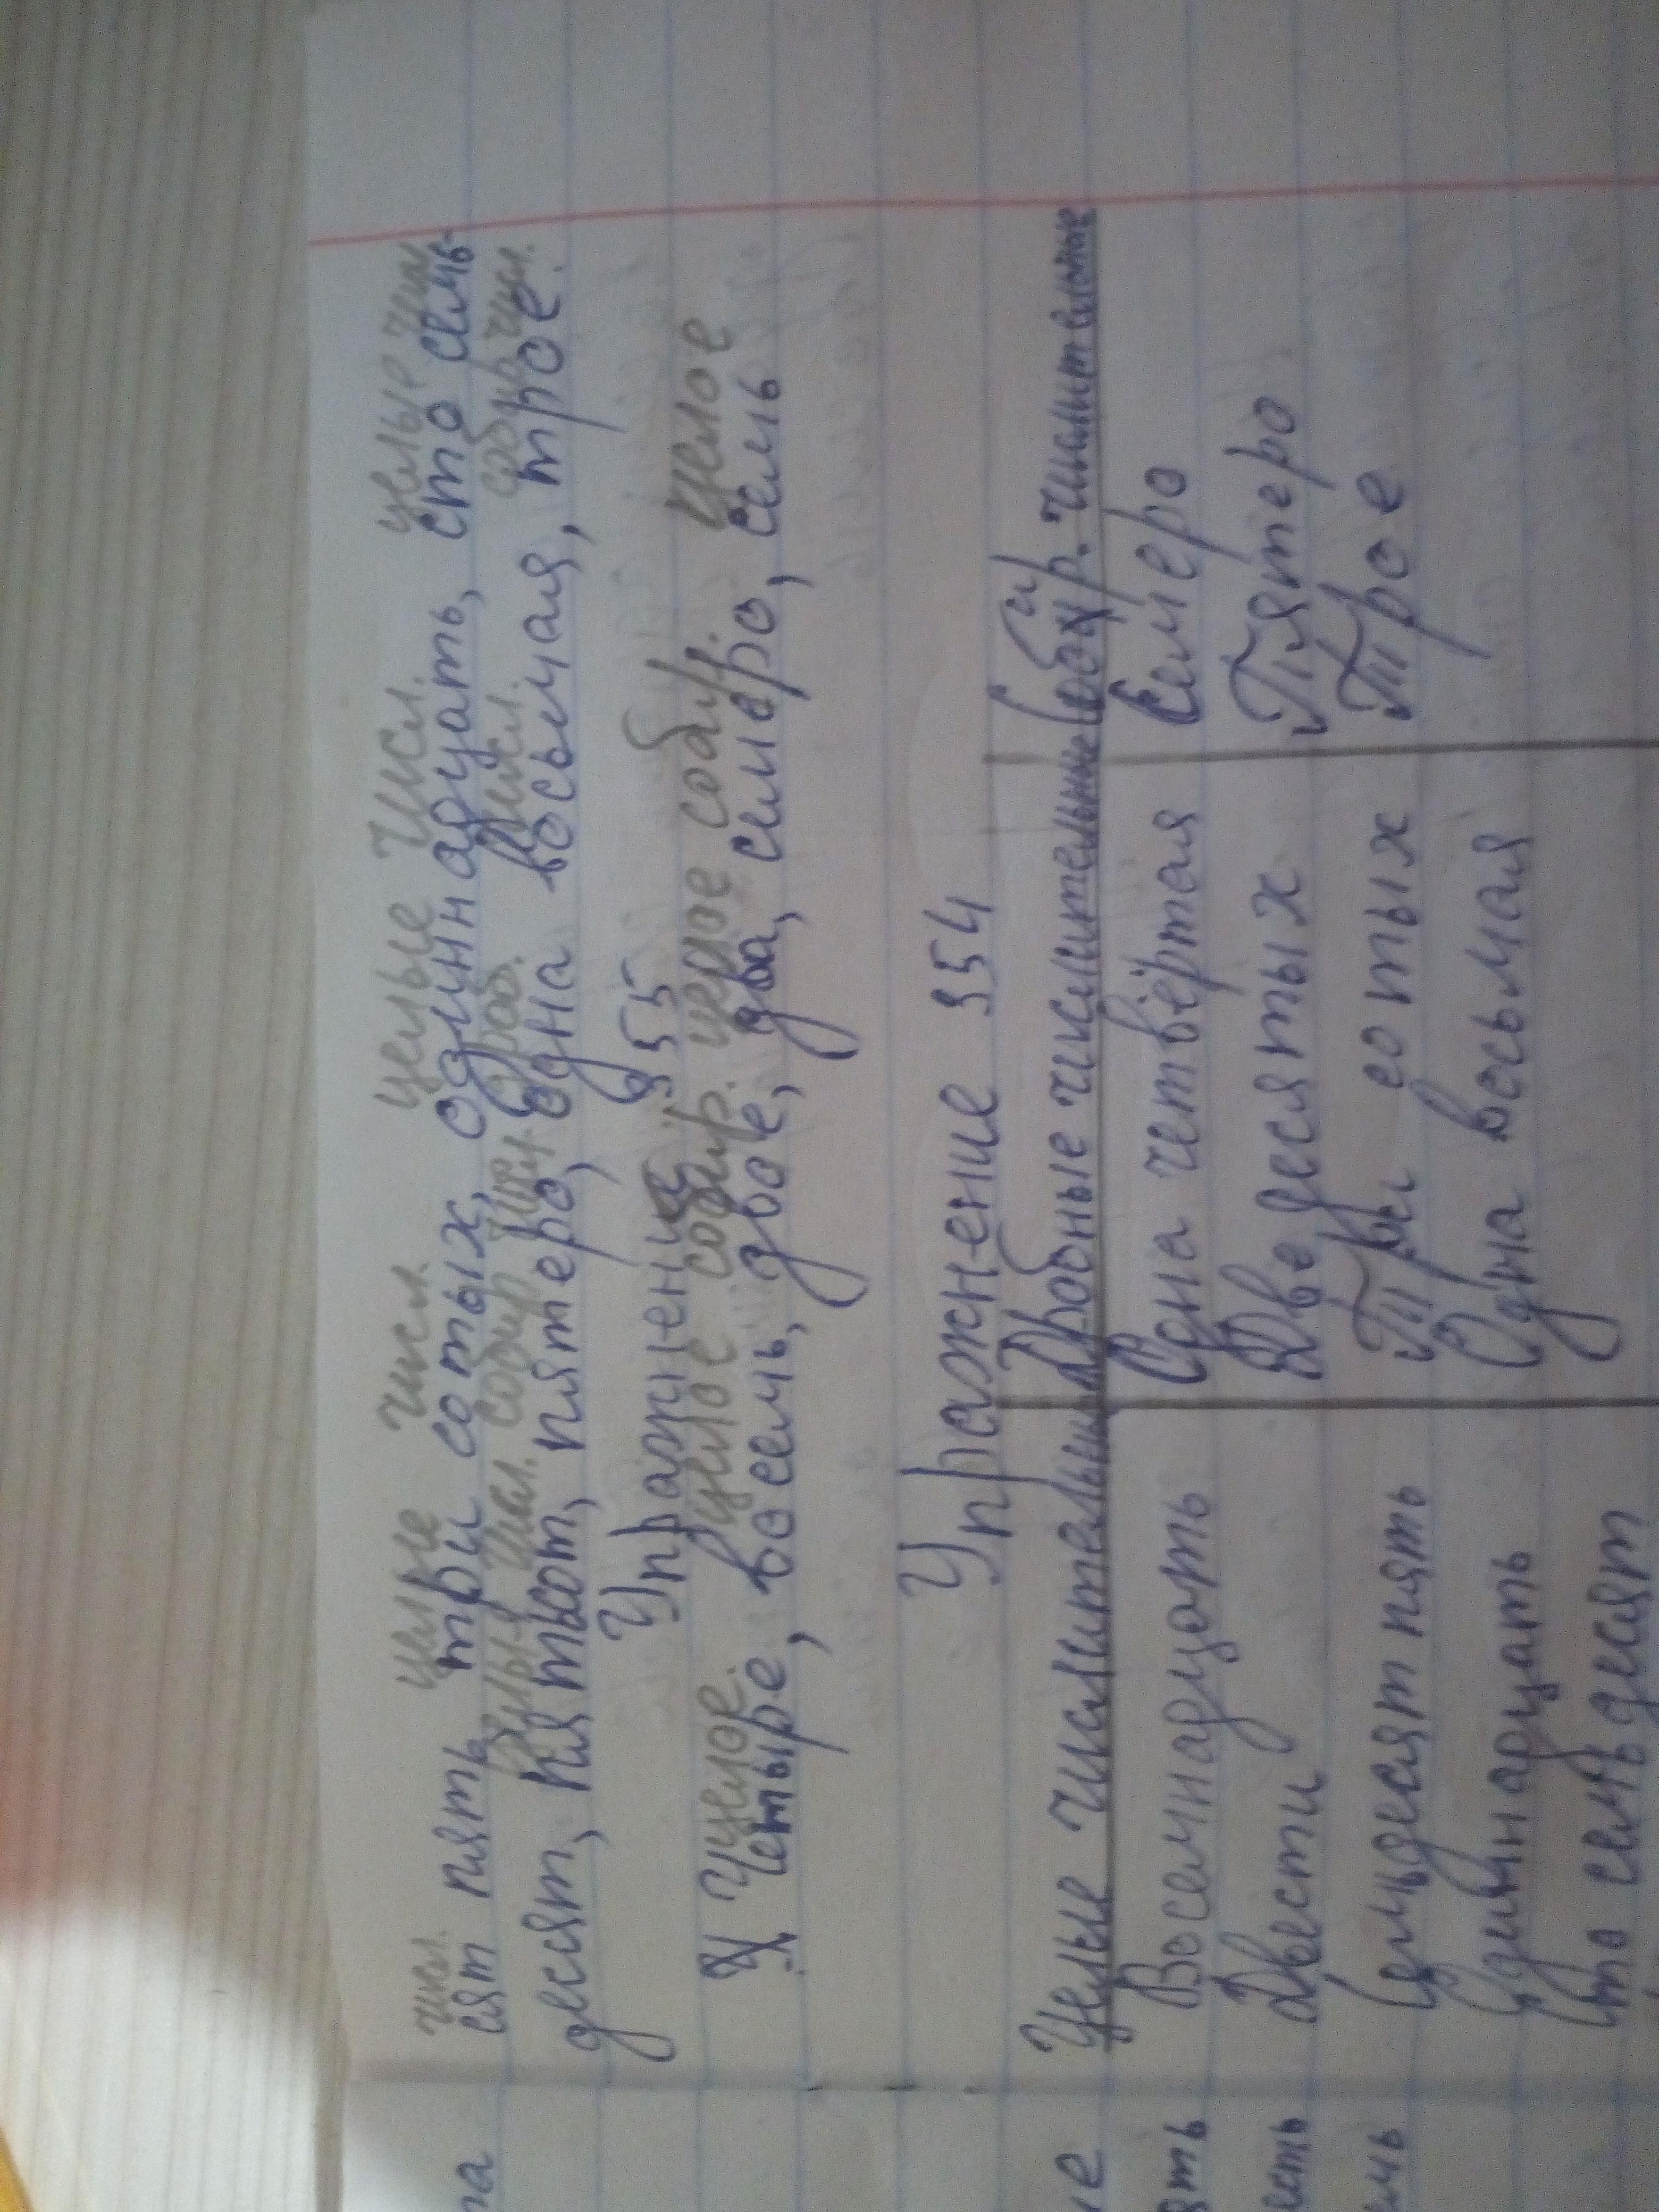 числ. целые числ. целые числ. целые числ.
сят пять три сотых, одиннадцать, сто семь-
числ. собир. числ. дроб. числ. собир. числ.
десят, пятьсот, пятеро, одна восьмая, трое.
Упражнение 355
Целое целое собир. целое собир. целое
Четыре, восемь, двое, два, семеро, семь
Упражнение 354
Целые числительные Дробные числительные Собир. числительные
Восемнадцать Одна четвёртая Семеро
Двести Две десятых Пятеро
Семьдесят пять Три сотых Трое
Одиннадцать Одна восьмая
Сто семьдесят